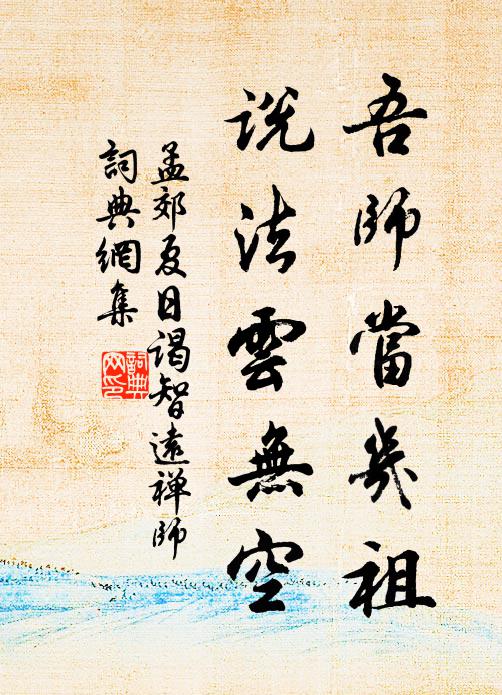 吾師當幾祖
說法雲無空
孟郊夏日謁智遠禪師
詞典網集
詞典
网印